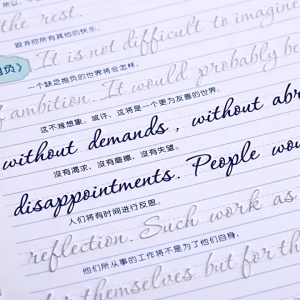 the rest.
毁弃你所有其他的快乐。
It is not difficult to imagine
一个缺乏抱负的世界将会怎样。
of ambition. It would probably be
这不难想象。或许，这将是一个更为友善的世界：
without demands , without abr
没有渴求，没有磨擦，没有失望。
disappointments. People wou
人们将有时间进行反思。
reflection. Such work as
他们所从事的工作将不是为了他们自身，
themselves but for th